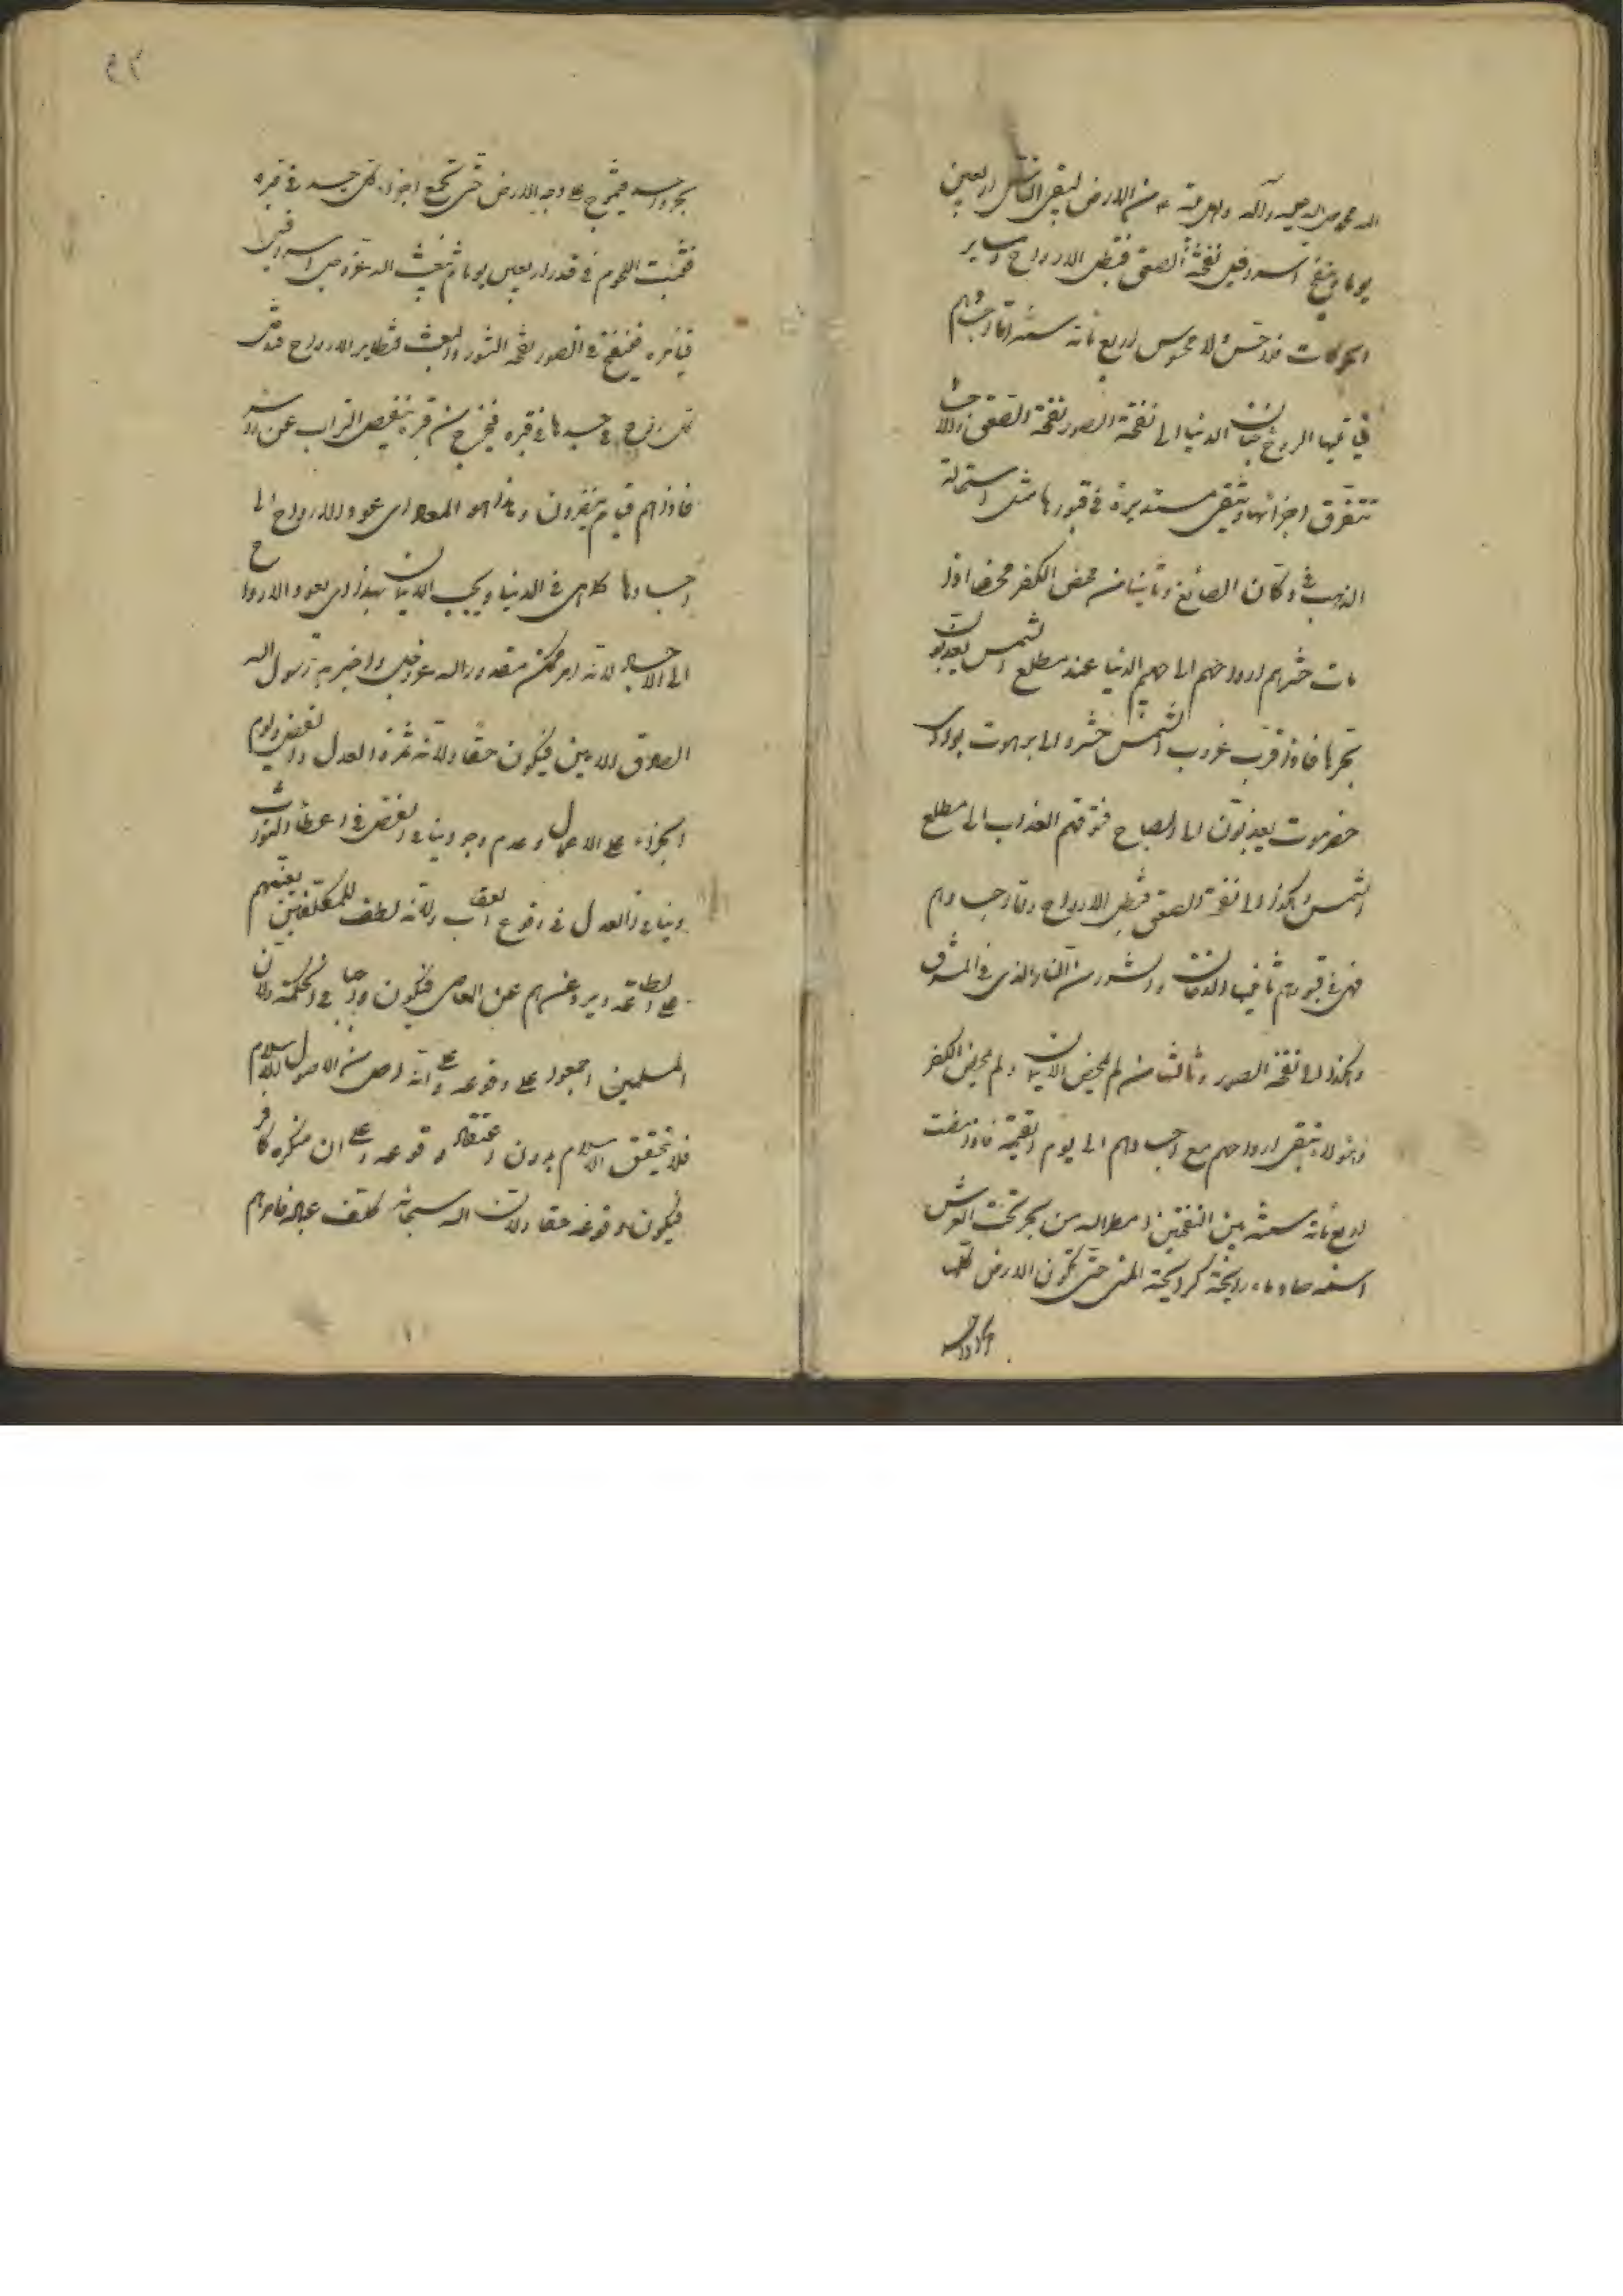 الله محمد صلى الله عليه وآله واهل بيته ع من الارض لبقى الناس اربعين
يوما وينفخ اسرافيل نفخة الصعق فتبطل الارواح وساير
الحركات فلا حس ولا محسوس اربع مائة سنة واما اجسادهم
فيأتيها الروح جنان الدنيا الى نفخة الصور نفخة الصعق والاجساد
تتفرق اجزائها وتبقى مستديرة في قبورها مثل سحالة
الذهب في دكان الصائغ وثانيا من محض الكفر محضا اذا
مات حشرهم ارواحهم الى جهنم الدنيا عند مطلع الشمس يعذبون
بحرها فاذا قرب غروب الشمس حشروا الى برهوت بوادى
حضرموت يعذبون الى الصباح فتسوقهم العذاب الى مطلع
الشمس وهكذا الى نفخة الصعق فتبطل الارواح واما اجسادهم
فهى في قبورهم يأتيها الدخان والشرور من النار الذى في المشرق
وهكذا الى نفخة الصور وثالثا من لم يمحض الايمان ولم يمحض الكفر
وهؤلاء تبقى ارواحهم مع اجسادهم الى يوم القيمة فاذا مضت
اربع مائة سنة بين النفختين امطر الله من بحر تحت العرش
اسمه صاد ماء رايحته كرايحة المنى حتى تكون الارض كلها
بحرا واحدا
٩٢
بحرا واحدا فيتموج على وجه الارض حتى تجمع اجزاء كل جسد في قبره
فتنبت اللحوم في قدر اربعين يوما ثم يبعث الله عز وجل اسرافيل
فيأمره فينفخ في الصور نفخة النشور والبعث فتطاير الارواح فتدخل
كل روح في جسدها في قبره فيخرج من قبره ينفض التراب عن رأسه
فاذا هم قيام ينظرون وهذا هو المعاد اى عود الارواح الى
اجسادها كما هى في الدنيا ويجب الايمان بهذا اى بعود الارواح
الى الاجساد لانه امر ممكن مقدور لله عز وجل واخبر به رسول الله
الصادق الامين فيكون حقا ولانه ثمرة العدل والفضل ويوم
الجزاء على الاعمال وعدم وجود ينافى الفضل في اعطاء الثواب
وينافى العدل في وقوع العقاب ولانه لطف للمكلفين يعينهم
على الطاعة ويردعهم عن المعاصى فيكون واجبا في الحكمة ولان
المسلمين اجمعوا على وقوعه وعلى انه اصل من الاصول الاسلام
فلا يتحقق الاسلام بدون اعتقاد وقوعه وعلى ان منكره كافر
فيكون وقوعه حقا ولان الله سبحانه كلف عباده فامرهم